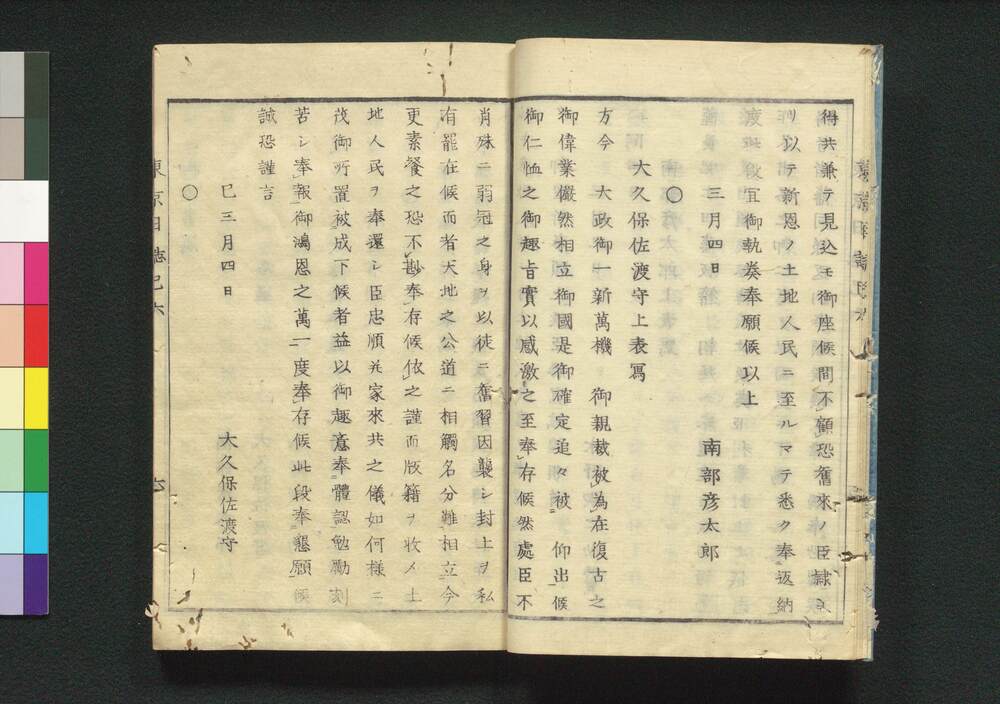 得共兼テ見込モ御座候間不顧恐舊來ノ臣隷
リ以テ新恩ノ土地人民ニ至ルマテ悉ク奉返納
度此段宜御執奏奉願候以上
三月四日　南部彦太郎
○
大久保佐渡守上表寫
方今　大政御一新萬機　御親裁被為在復古之
御偉業儼然相立御國是御確定追々被　仰出候
御仁恤之御趣旨實以感激之至奉存候然處臣不
肖殊ニ弱冠之身ヲ以徒ニ舊習因襲シ封土ヲ私
有罷在候而者天地之公道ニ相觸名分難相立今
更素餐之恐不尠奉存候依之謹而版籍ヲ收メ土
地人民ヲ奉還シ臣忠順并家來共之儀如何様ニ
茂御所置被成下候者益以御趣意奉體認勉勵刻
苦シ奉報御鴻恩之萬一度奉存候此段奉懇願候
誠恐謹言
巳三月四日　大久保佐渡守
○
東京日誌巳六　六